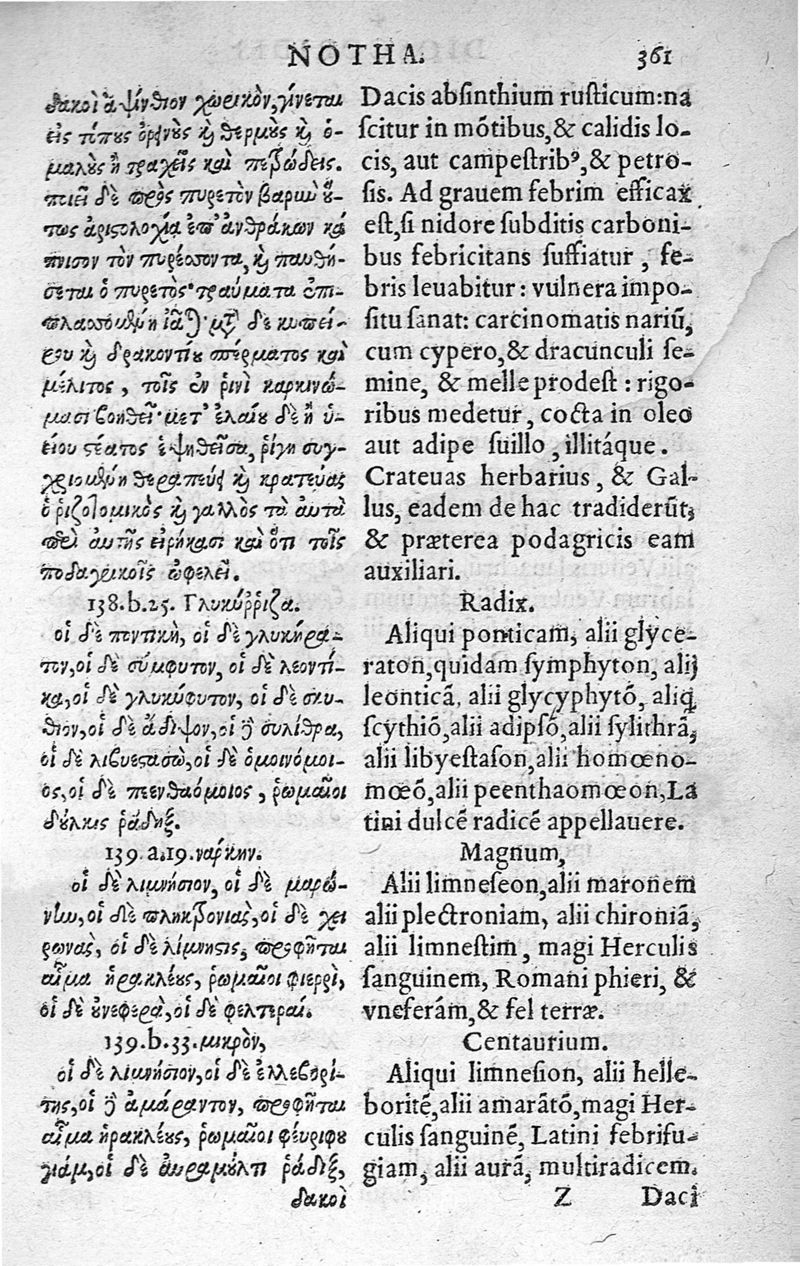 NOTHA. 361
δακοὶ ἀψίνθιον χωρικὸν, γίνεται
εἰς τόπους ὀρεινοὺς καὶ θερμοὺς καὶ ὁ-
μαλοὺς ἢ τραχεῖς καὶ πετρώδεις.
ποιεῖ δὲ πρὸς πυρετὸν βαριὼ οὕ-
τως ἀριστολοχία ἐπ' ἀνθράκων κά
πνισον τὸν πυρέσσοντα, καὶ παυθή-
σεται ὁ πυρετὸς· τραύματα ἐπι-
πλασσομένη ἰᾶται· μετὰ δὲ κυπεί-
ρου καὶ δρακοντίου σπέρματος καὶ
μέλιτος, τοῖς ἐν ῥινὶ καρκινώ-
μασι βοηθεῖ· μετ' ἐλαίου δὲ ἢ ὑ-
είου στέατος ἑψηθεῖσα, ῥίγη συγ-
χριομένη θεραπεύει καὶ κρατεύας
ὁ ῥιζοτομικὸς καὶ γάλλος τὰ αὐτὰ
περὶ αὐτῆς εἰρήκασι καὶ ὅτι τοῖς
ποδαγρικοῖς ὠφελεῖ.
138.b.25. Γλυκύῤῥιζα.
οἱ δὲ ποντικὴ, οἱ δὲ γλυκήρα-
τον, οἱ δὲ σύμφυτον, οἱ δὲ λεοντί-
κα, οἱ δὲ γλυκύφυτον, οἱ δὲ σκυ-
θίον, οἱ δὲ ἄδιψον, οἱ δὲ συλίθρα,
οἱ δὲ λιβυεστασὼ, οἱ δὲ ὁμοινόμοι-
ος, οἱ δὲ πεενθαόμοιος, ῥωμαῖοι
δούλκις ῥάδηξ.
139.a.19. ναρκην.
οἱ δὲ λιμνήσιον, οἱ δὲ μαρώ-
νιω, οἱ δὲ πληκτρονιὰς, οἱ δὲ χει
ρωνιὰς, οἱ δὲ λίμνησις, προφῆται
αἷμα ἡρακλέους, ῥωμαῖοι φιερρὶ,
οἱ δὲ οὐνεφερὰ, οἱ δὲ φελτεραί.
139.b.33. μικρὸν,
οἱ δὲ λιμνήσιον, οἱ δὲ ἐλλεβορί-
της, οἱ δὲ ἀμάραντον, προφῆται
αἷμα ἡρακλέους, ῥωμαῖοι φεύριφου
γιάμ, οἱ δὲ αὐραμούλτι ῥάδιξ,
δακοὶ
Dacis absinthium rusticum: na
scitur in mõtibus, & calidis lo-
cis, aut campestribꝰ, & petro-
sis. Ad grauem febrim efficax
est, si nidore subditis carboni-
bus febricitans suffiatur, fe-
bris leuabitur: vulnera impo-
situ sanat: carcinomatis nariũ,
cum cypero, & dracunculi se-
mine, & melle prodest: rigo-
ribus medetur, cocta in oleo
aut adipe suillo, illitáque.
Crateuas herbarius, & Gal-
lus, eadem de hac tradiderũt,
& præterea podagricis eam
auxiliari.
Radix.
Aliqui ponticam, alii glyce-
raton, quidam symphyton, alij
leonticã, alii glycyphytõ, aliq
scythiõ, alii adipsõ, alii sylithrã,
alii libyestason, alii homœno-
mœõ, alii peenthaomœon, La
tini dulcẽ radicẽ appellauere.
Magnum,
Alii limneseon, alii maronem
alii plectroniam, alii chironiã,
alii limnestim, magi Herculis
sanguinem, Romani phieri, &
vneferám, & fel terræ.
Centaurium.
Aliqui limnesion, alii helle-
boritẽ, alii amarãtõ, magi Her-
culis sanguinẽ, Latini febrifu-
giam, alii aurã, multiradicem.
Z Daci